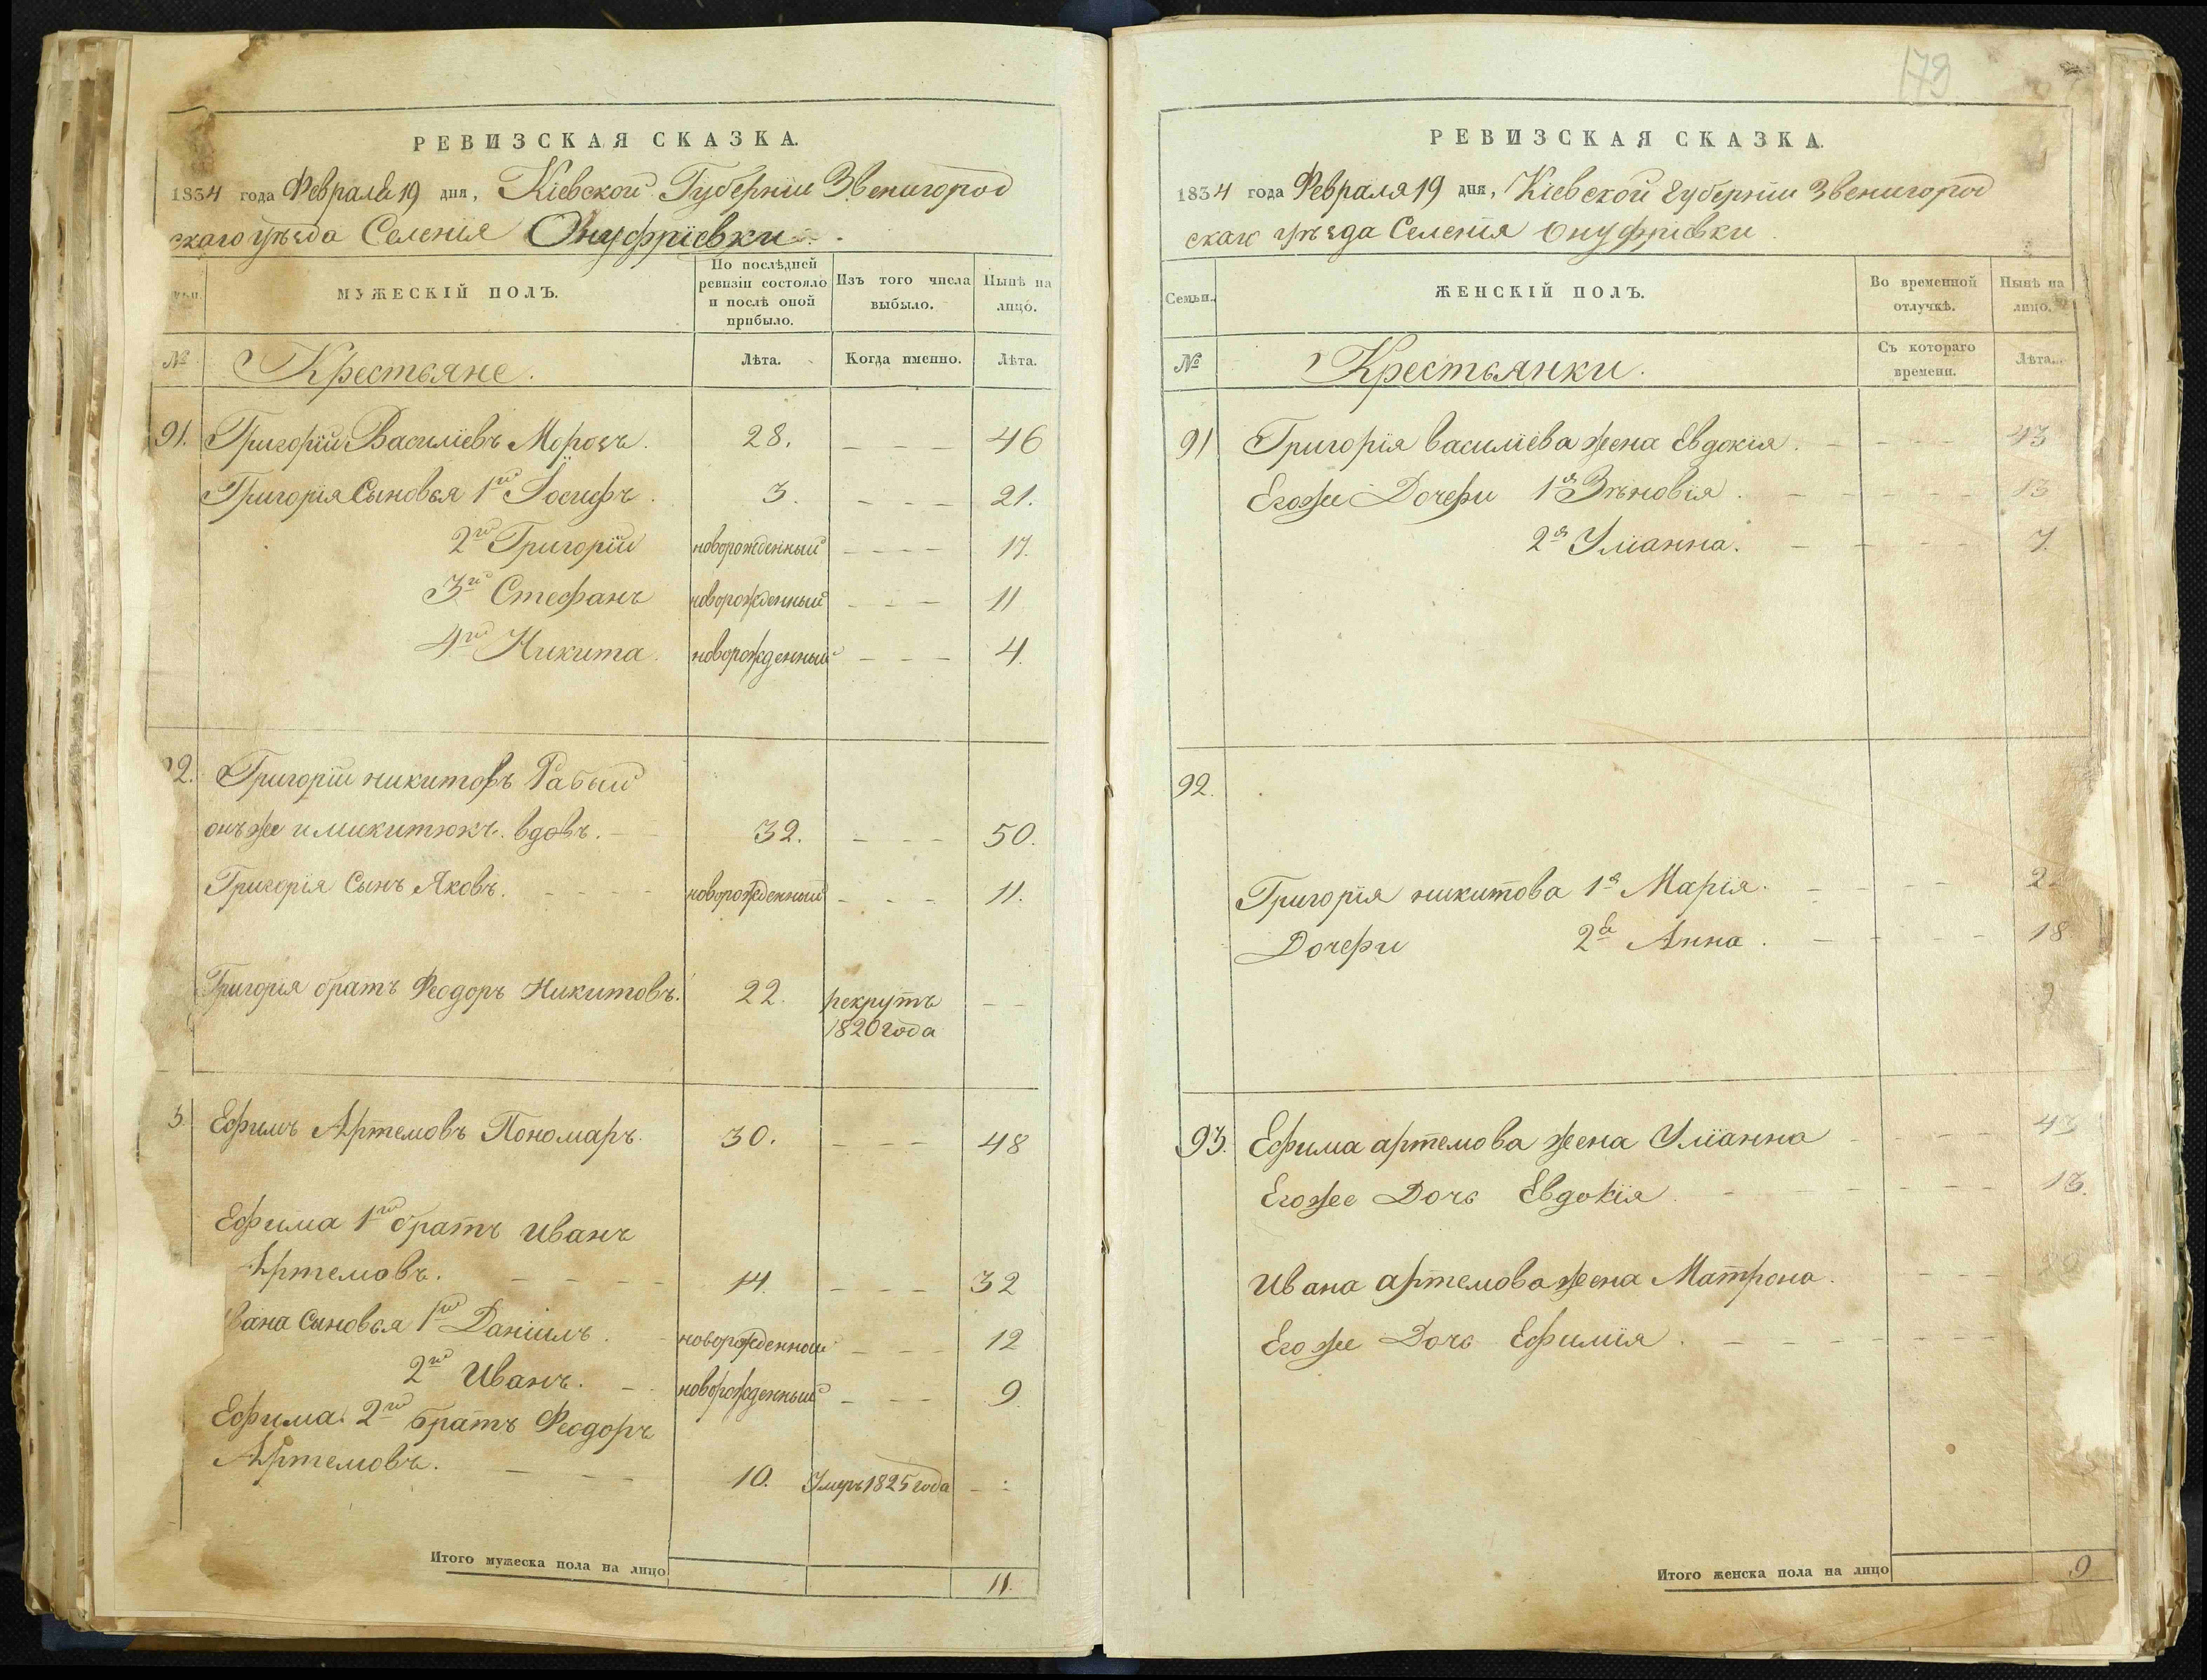 РЕВИЗСКАЯ СКАЗКА.
1834 года Февраля 19 дня, Кіевской Губерніи Звенигород
скаго уѣзда Селенія Онуфріевки.
МУЖЕСКІЙ ПОЛЪ.
По послѣдней
ревизіи состояло
и послѣ оной
прибыло.
Изъ того числа
выбыло.
Нынѣ на
лицо.
№
Крестьяне.
Лѣта.
Когда именно.
Лѣта.
91. Григорій Василіевъ Морозъ. 28. - - - 46
Григорія Сыновья 1й Іосифъ. 3. - - - 21.
2й Григорій новорожденный - - - - 17.
3й Стефанъ новорожденный - - - 11
4й Никита. новорожденный - - - 4.
2. Григорій никитовъ Рабый
онъже и микитюкъ. вдовъ. - - 32. - - - 50.
Григорія Сынъ Яковъ. - - - - новорожденный - - - 11.
Григорія братъ Феодоръ Никитовъ. 22. рекрутъ - -
1820 года
3. Ефимъ Артемовъ Пономаръ. 30. - - - 48
Ефима 1й братъ Иванъ
Артемовъ. - - - - 14. - - - 32
вана Сыновья 1й Даніилъ. - новорожденной - - - 12
2й Иванъ. - - новорожденный - - - 9.
Ефима 2й братъ Феодоръ
Артемовъ. - - - 10. Умеръ 1825 года - :
Итого мужеска пола на лицо 11.
179
РЕВИЗСКАЯ СКАЗКА.
1834 года Февраля 19 дня, Кіевской Губерніи Звенигород
скаго уѣзда Селенія Онуфріевки
Семьи.
ЖЕНСКІЙ ПОЛЪ.
Во временной
отлучкѣ.
Нынѣ на
лицо.
№
Крестьянки.
Съ котораго
времени.
Лѣта.
91 Григорія василіева жена Евдокія. - - - - 43
Егоже Дочери 1я Зѣновія. - - - - - 13
2я Уліанна. - - - - 7.
92.
Григорія никитова 1я Марія. - - - -
Дочери 2я Анна. - - - - 18
93. Ефима артемова жена Уліанна - - - - 43
Егоже Дочь Евдокія. - - - - - - 13.
Ивана артемова жена Матрона. - - -
Егоже Дочь Ефимія. - - - - - - -
Итого женска пола на лицо 9